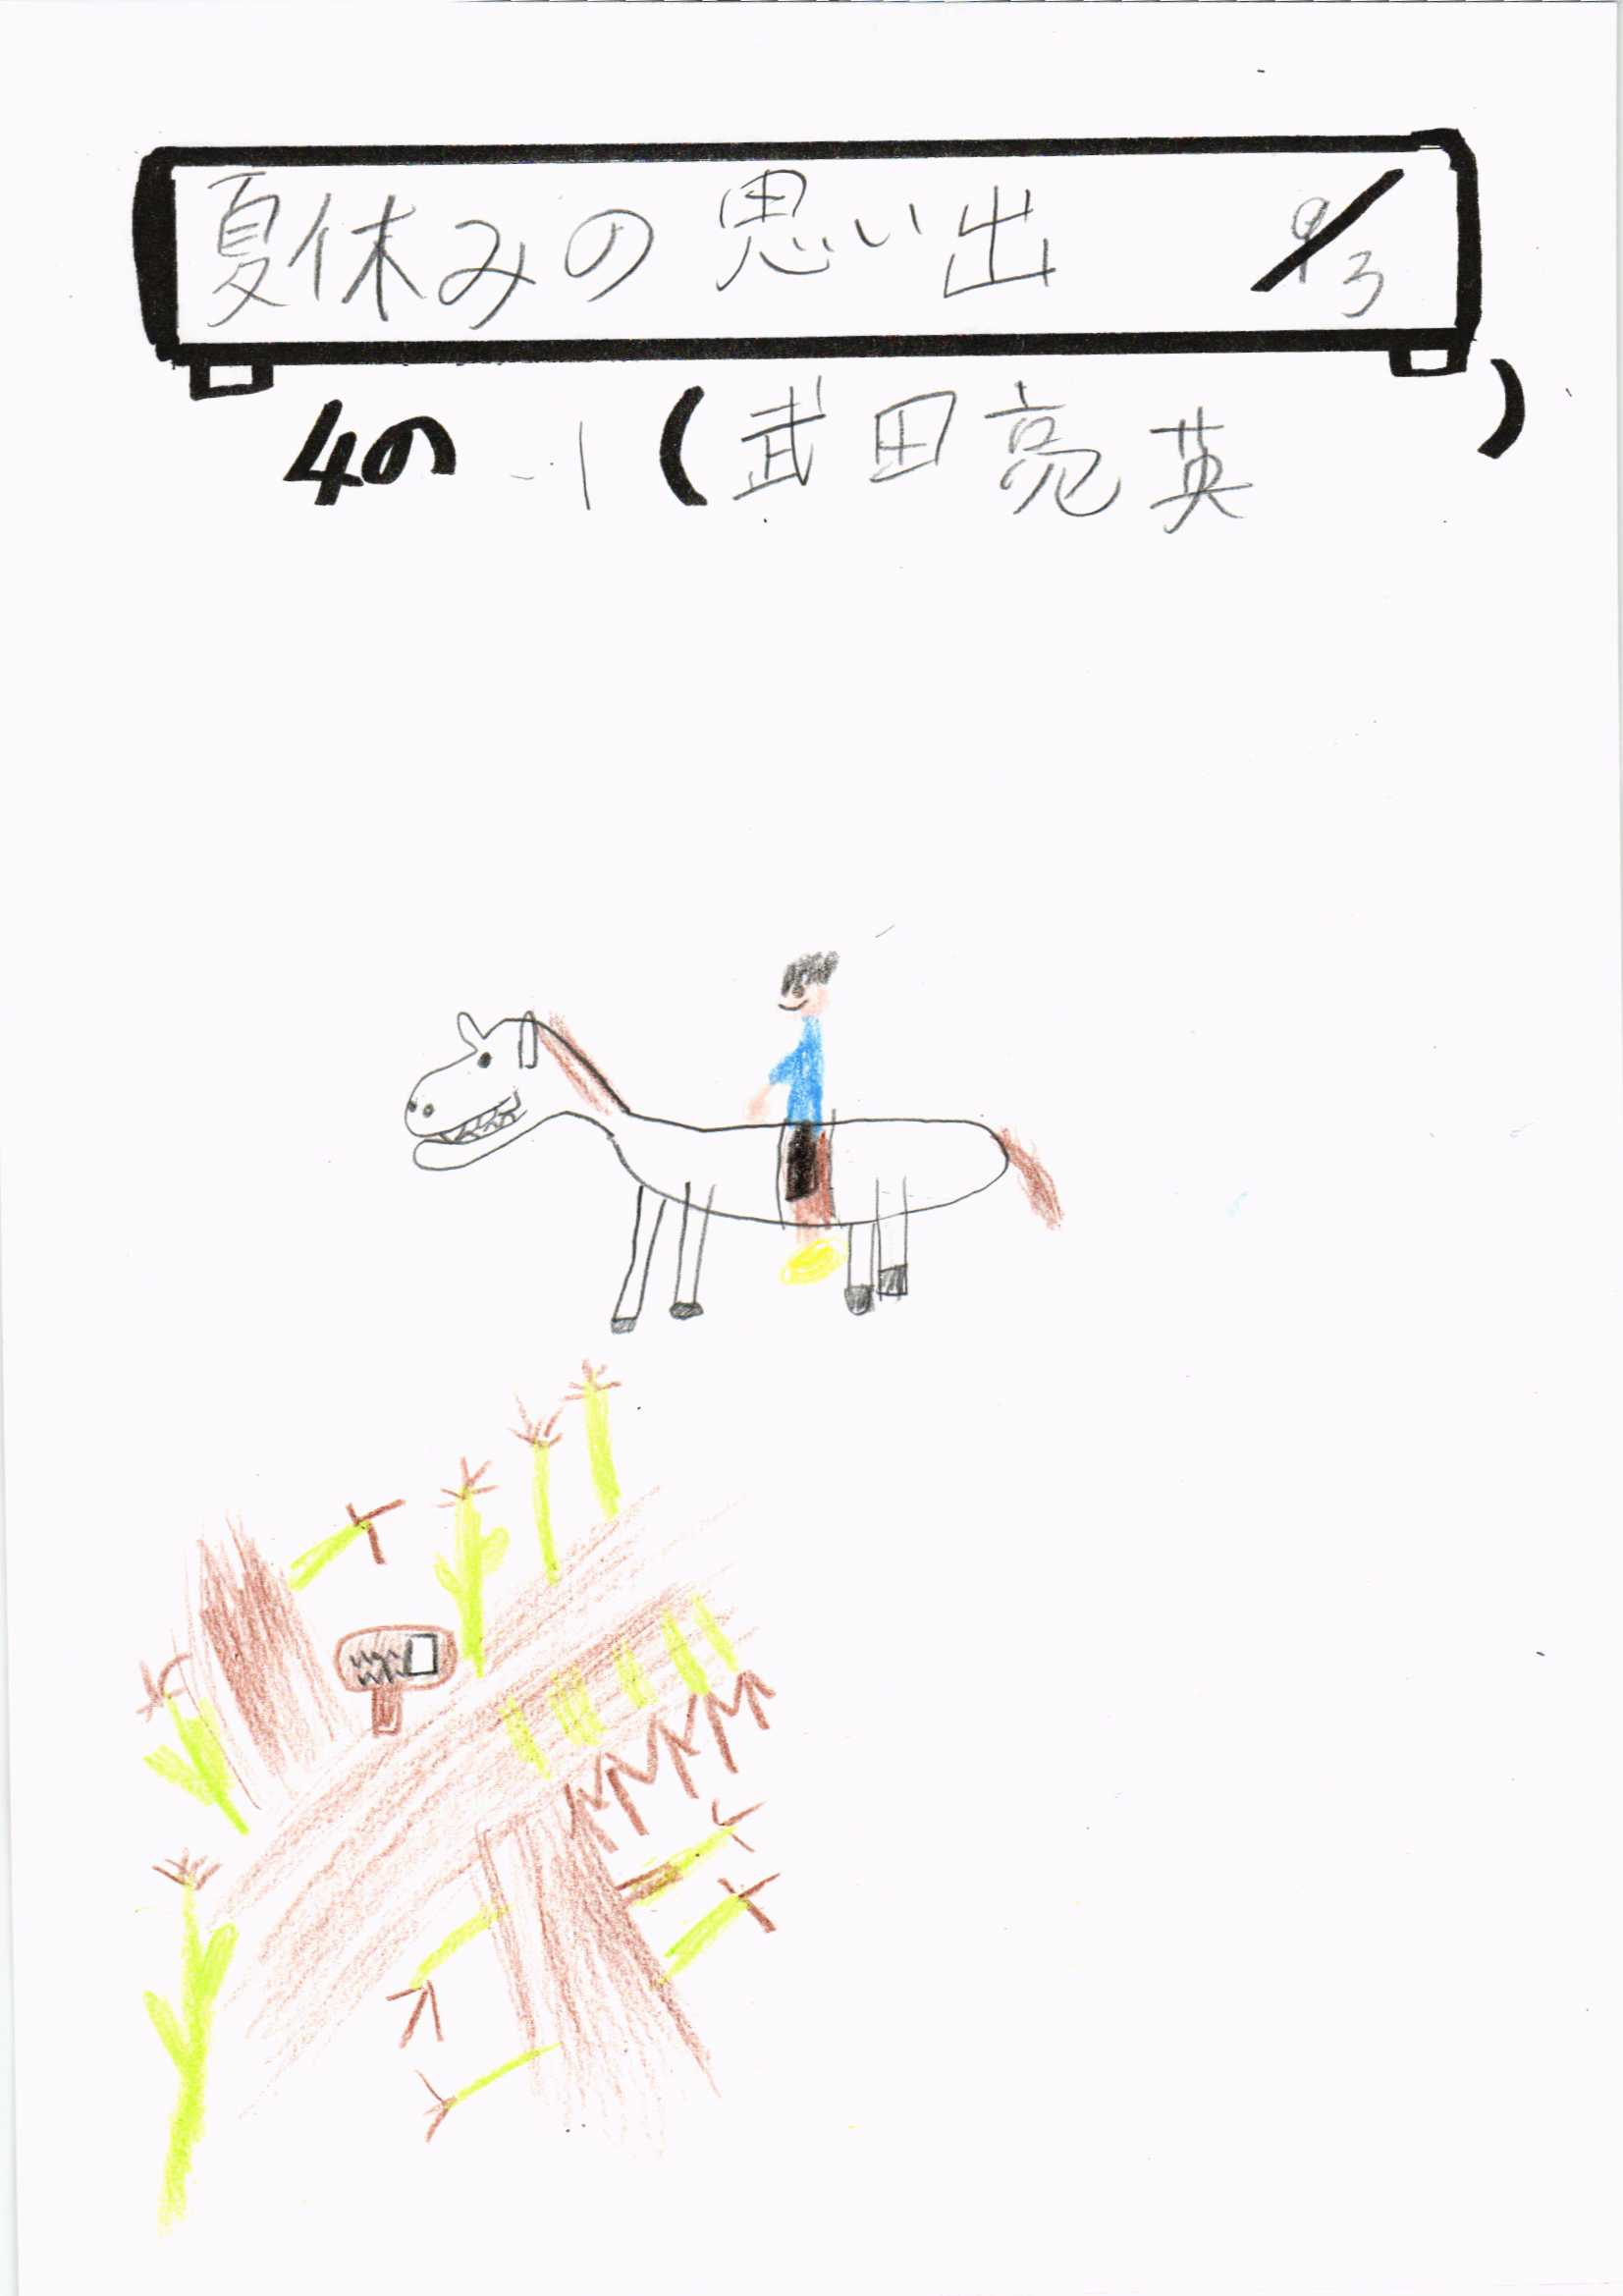 夏休みの思い出 9/3
4の1(武田亮英)